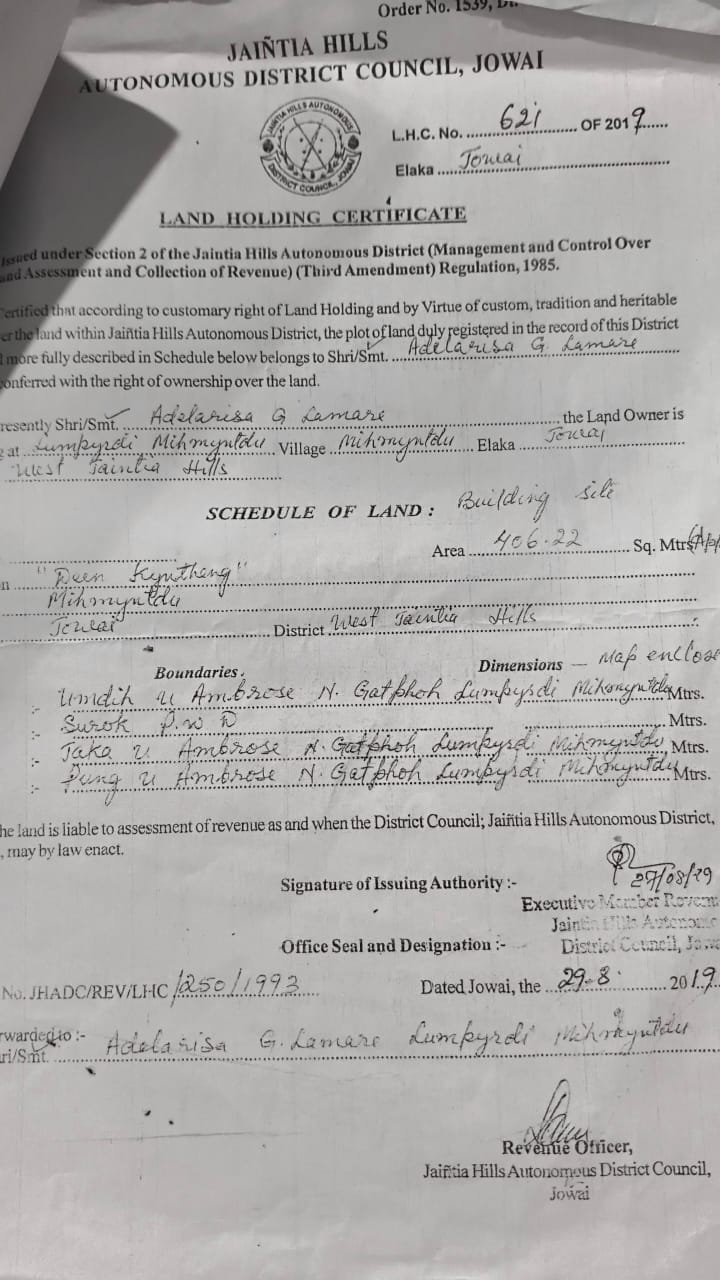 Order No. 1539,
JAIÑTIA HILLS
AUTONOMOUS DISTRICT COUNCIL, JOWAI
JAINTIA HILLS AUTONOMOUS
DISTRICT COUNCIL, JOWAI
L.H.C. No. 621 OF 2019
Elaka Jowai
LAND HOLDING CERTIFICATE
Issued under Section 2 of the Jaintia Hills Autonomous District (Management and Control Over
and Assessment and Collection of Revenue) (Third Amendment) Regulation, 1985.
Certified that according to customary right of Land Holding and by Virtue of custom, tradition and heritable
er the land within Jaiñtia Hills Autonomous District, the plot of land duly registered in the record of this District
more fully described in Schedule below belongs to Shri/Smt. Adelarisa G. Lamare
onferred with the right of ownership over the land.
resently Shri/Smt. Adelarisa G Lamare, the Land Owner is
at Lumpyrdi Mihmyntdu Village Mihmyntdu Elaka Jowai
West Jaintia Hills
SCHEDULE OF LAND : Building site
Area 406.22 Sq. Mtrs
n "Deen Kynthang"
Mihmyntdu
Jowai District West Jaintia Hills
Boundaries. Dimensions — Map enclose
:- Umdih u Ambrose N. Gatphoh Lumpyrdi Mihmyntdu Mtrs.
:- Surok P.W D Mtrs.
:- Taka u Ambrose N. Gatphoh Lumpyrdi Mihmyntdu Mtrs.
:- Pung u Ambrose N. Gatphoh Lumpyrdi Mihmyntdu Mtrs.
he land is liable to assessment of revenue as and when the District Council; Jaiñtia Hills Autonomous District,
, may by law enact.
Signature of Issuing Authority :- 27/08/19
Executive Member Revenu
Jaintia Hills Autonomo
Office Seal and Designation :- District Council, Jowa
No. JHADC/REV/LHC/250/1993 Dated Jowai, the 29.8. 2019
rwarded to :-
ri/Smt. Adelarisa G. Lamare Lumpyrdi Mihmyntdu
Revenue Officer,
Jaiñtia Hills Autonomous District Council,
Jowai